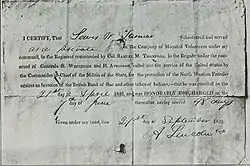 I CERTIFY, That Lewis W. Farmer Volunteered and served
as a private in the Company of Mounted Volunteers under my
command, in the Regiment commanded by Col. SAMUEL M. THOMPSON, in the Brigade under the command
of Generals S. WHITESIDE and H. ATKINSON, called into the service of the United States by
the Commander-in-Chief of the Militia of the State, for the protection of the North Western Frontier
against an Invasion of the British Band of Sac and other tribes of Indians,—that he was enrolled on the
21st day of April 1832, and was HONORABLY DISCHARGED on the
7th day of June thereafter, having served 48 days
Given under my hand, this 21st day of September 1832.
A. Lincoln